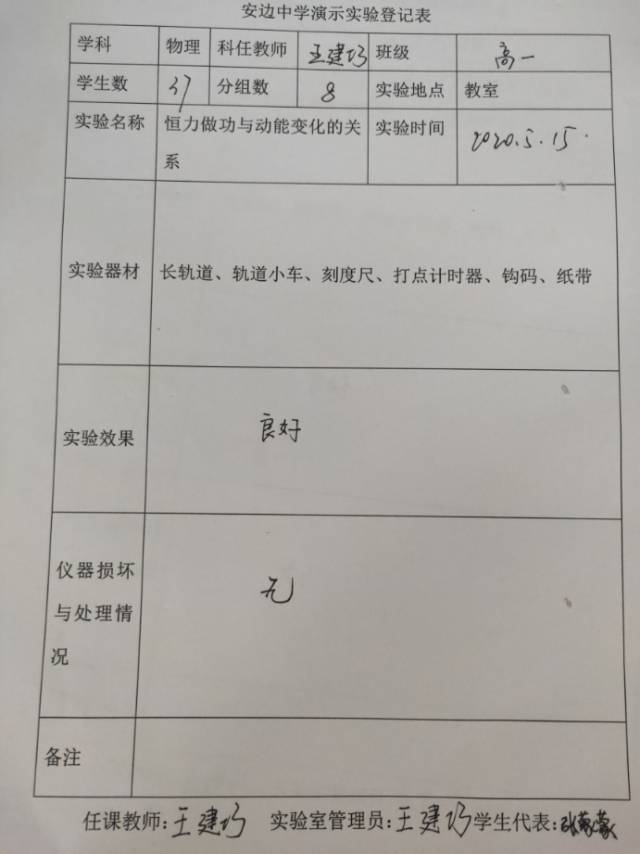 安边中学演示实验登记表
学科 物理 科任教师 王建巧 班级 高一
学生数 37 分组数 8 实验地点 教室
实验名称 恒力做功与动能变化的关 实验时间 2020.5.15.
系
实验器材 长轨道、轨道小车、刻度尺、打点计时器、钩码、纸带
实验效果 良好
仪器损坏
与处理情 无
况
备注
任课教师:王建巧 实验室管理员:王建巧 学生代表:张蒙蒙